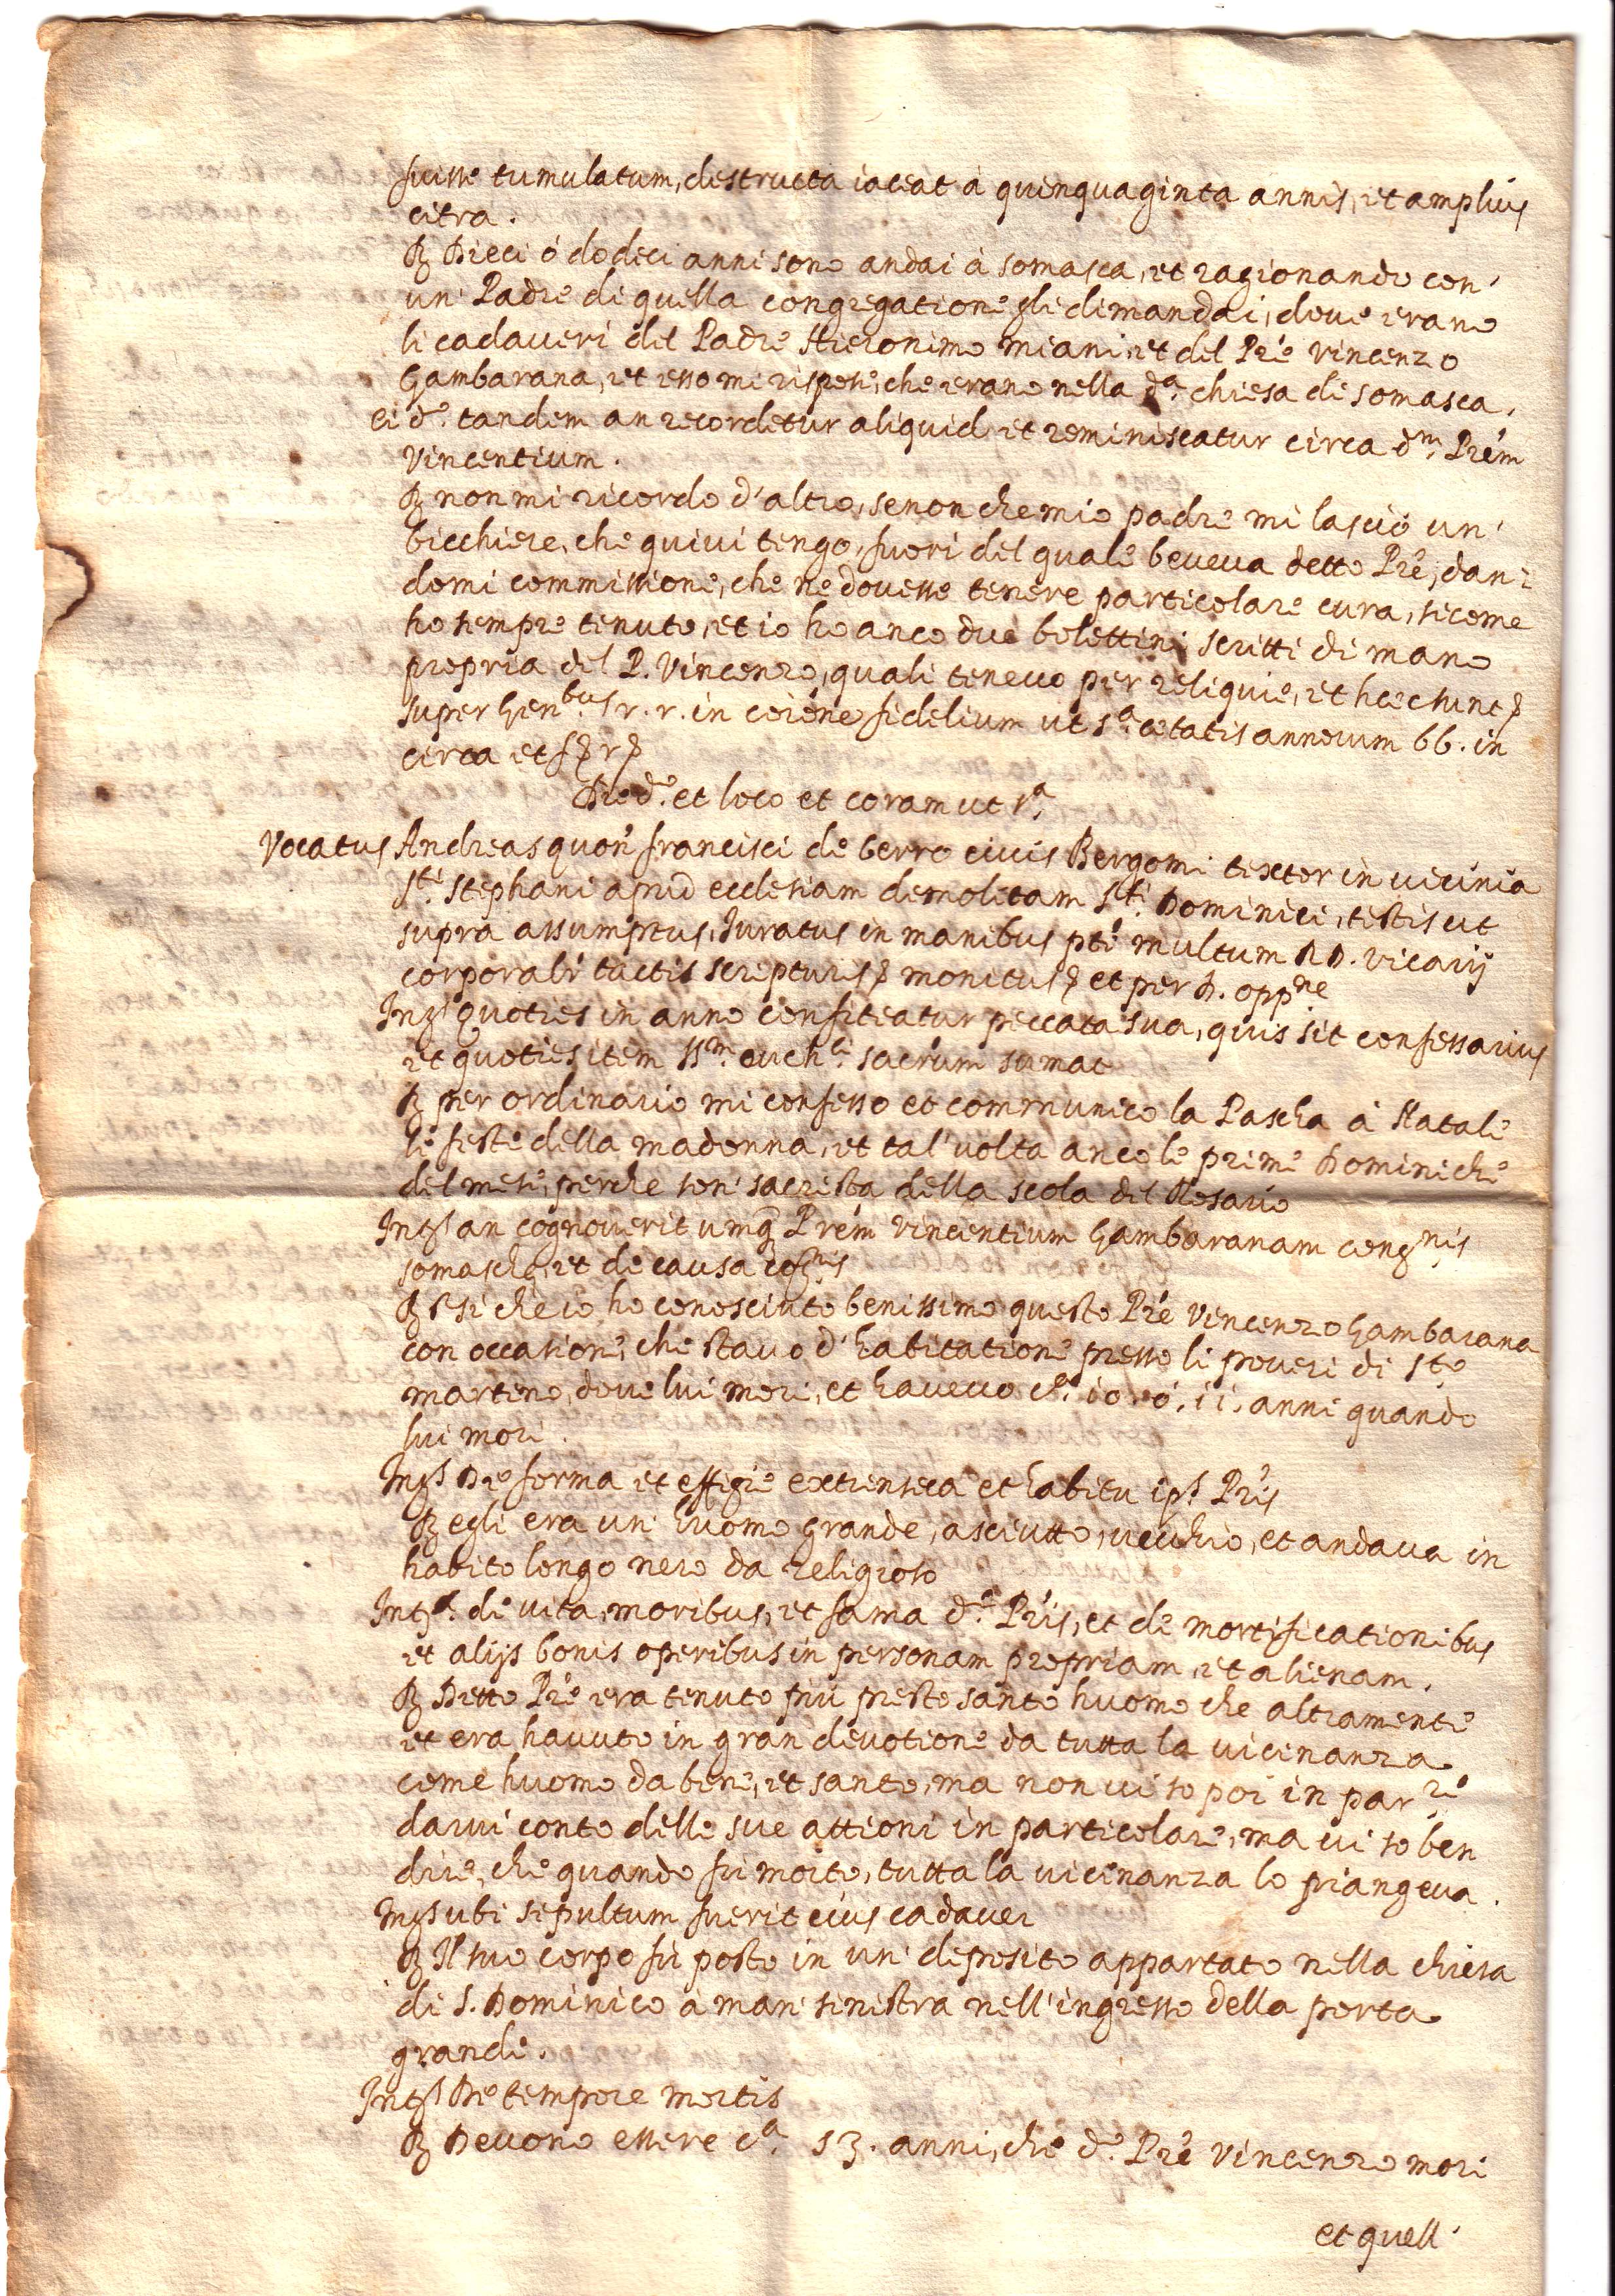 fuisse tumulatum, destructa iaceat à quinquaginta annis, et amplius
citra.
R Dieci ò dodeci anni sono andai à Somasca, et ragionando con'
un' Padre di quella congregatione gli dimandai, dove erano
li cadaveri del Padre Hieronimo Miani, et del Prē Vincenzo
Gambarana, et esso mi rispose, che erano nella d.ª chiesa di Somasca.
Ei d.º tandem an recordetur aliquid, et reminiscatur circa d.m Prēm
Vincentium.
R non mi ricordo d'altro, se non che mio padre mi lasciò un'
bicchiere, che quivi tengo, fuori del quale beveva detto Prē, dan:
domi commissione, che ne dovesse tenere particolare cura, sicome
ho sempre tenuto, et io ho anco due bolettini scritti di mano
propria del P. Vincenzo, quali tenevo per reliquie, et hæc
super gen.bus r. r. in fidelium ut s.ª ætatis annorum 66. in
circa et
Die d.º et loco et coram ut s.ª
Vocatus Andreas quon' Francisci de berro civis Bergomi textor in vicinia
S.ti Stephani apud ecclesiam demolitam S.ti Dominici, testis ut
supra assumptus, Iuratus in manibus pti multum R D. Vicarij
corporalr tactis scripturis monitus et per D. oppne
Ints Quoties in anno confiteatur peccata sua, quis sit confessarius
et quoties item SS.m euch.i sacrum sumat
R per ordinario mi confesso et communico la Pascha à Natale
le feste della madonna, et tal' volta anco le prime Dominiche
del mese, perche son' sacrista della scola del Rosario
Ints an cognoverit umq Prēm Vincentium Gambaranam congnis
somaschę, et de causa cognis
R Si che io ho conosciuto benissimo questo Prē Vincenzo Gambarana
con occasione, che stavo d'habitatione presso li poveri di S.to
Martino, dove lui morì, et havevo c.ª 10. ò. 11. anni quando
lui morì.
Ints De forma et effigie extrinseca et habitu ips. Prīs
R egli era un' huomo grande, asciutto, vecchio, et andava in
habito longo nero da religioso
Int.s de vita, moribus, et fama d.i Prīs, et de mortificationibus
et alijs bonis operibus in personam propriam, et alienam.
R Detto Prē era tenuto più presto santo huomo che altramente
et era havuto in gran' devotione da tutta la vicinanza
come huomo da bene, et santo, ma non vi so poi in par.re
darvi conto delle sue attioni in particolare, ma vi so ben
dire, che quando fù morto, tutta la vicinanza lo piangeva.
Ints ubi sepultum fuerit eius cadaver
R Il suo corpo fù posto in un' deposito appartato nella chiesa
di S. Dominico à man' sinistra nell'ingresso della porta
grande.
Ints De tempore mortis
R Devono essere c.ª 53. anni, che d.º Prē Vincenzo morì
et quell'